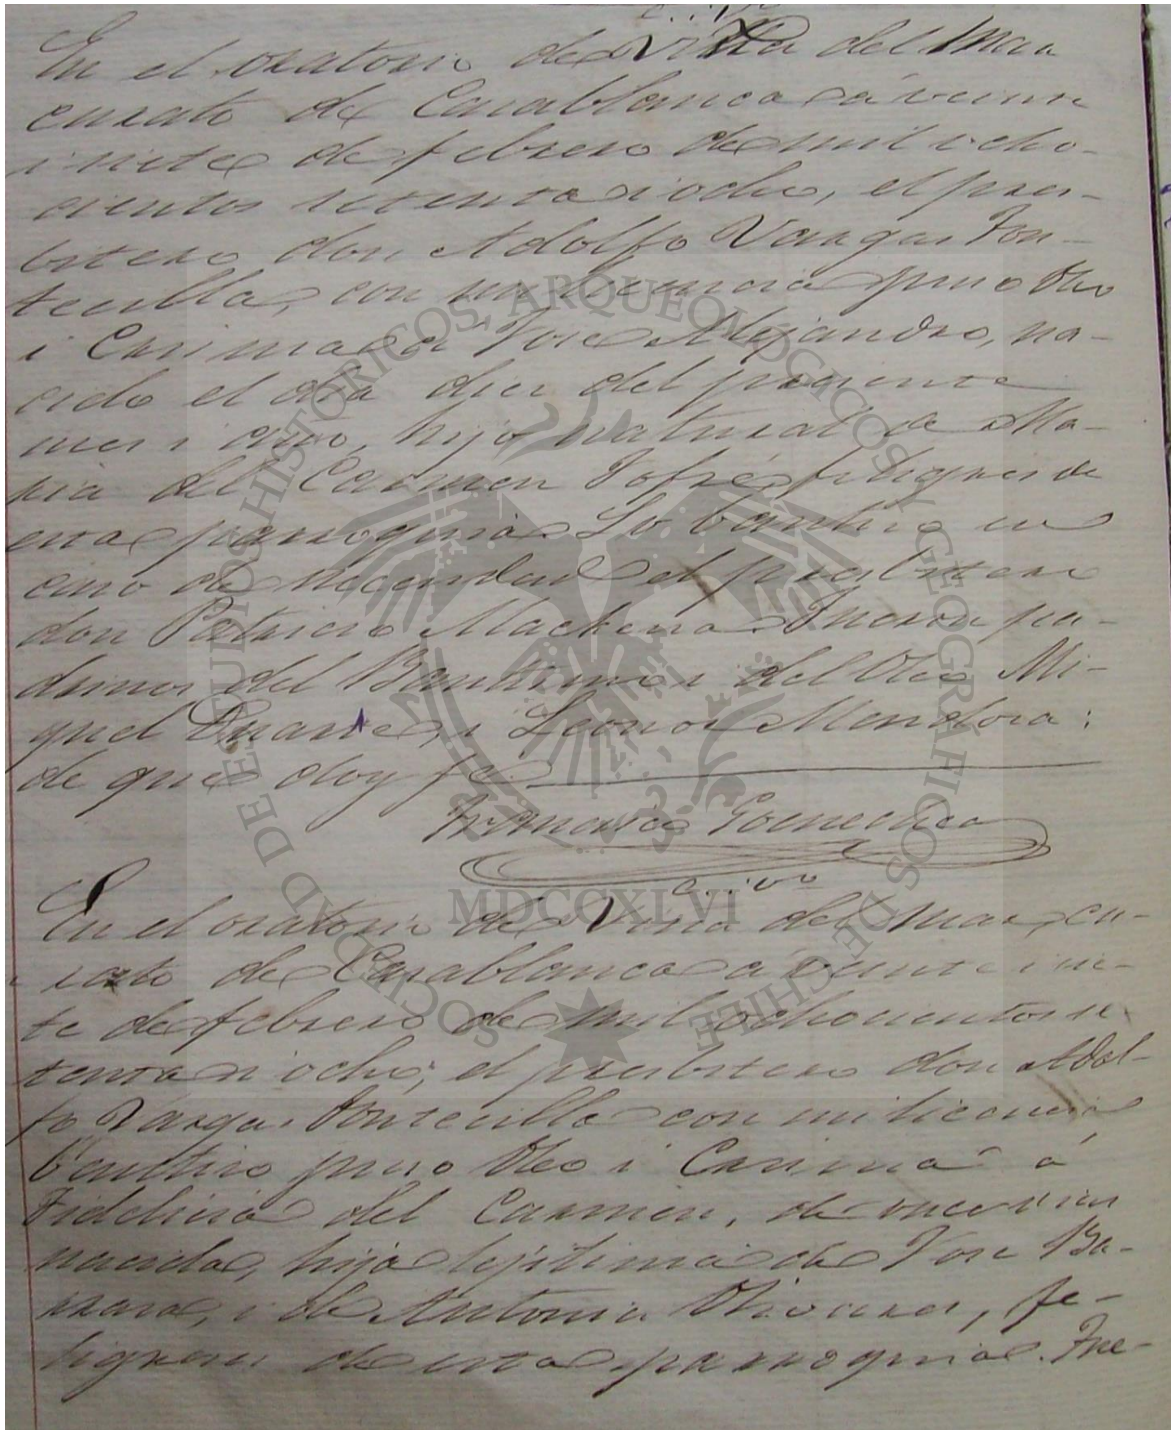 En el oratorio de Viña del Mar
curato de Casablanca á veinte
i siete de febrero de mil ocho-
cientos setenta i ocho, el pres-
bitero don Adolfo Vargas Fon-
tecilla, con mi licencia puso Oleo
i Crisma a José Alejandro, na-
cido el dia diez del presente
mes i año, hijo natural de Ma-
ria del Carmen Jofré feligres de
esta parroquia. Lo bautizó en
caso de necesidad el presbitero
don Patricio Mackena. Fueron pa-
drinos del Bautismo i del Oleo Mi-
guel Duarte, i Leonor Mendoza:
de que doy fe
Goenechea
En el oratorio de Viña del Mar, cu-
rato de Casablanca á veinte i sie-
te de febrero de mil ochocientos se-
tenta i ocho; el presbitero don Adol-
fo Vargas Fontecilla con mi licencia
bautizó puso Oleo i Crisma á
del Carmen, de
nacida, hija lejitima de José Ba-
i de Antonia Olivares, fe-
ligreses de esta parroquia. Fue-
SOCIEDAD DE ESTUDIOS HISTÓRICOS, ARQUEOLÓGICOS Y GEOGRÁFICOS DE CHILE
MDCCXLVI